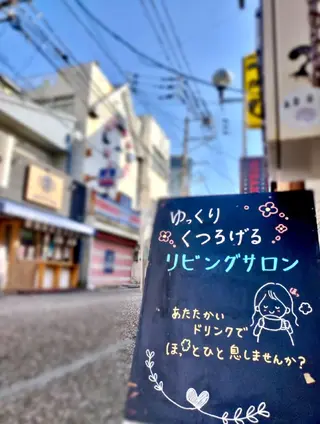 ゆっくり
くつろげる
リビングサロン
あたたかい
ドリンクで
ほっとひと息しませんか？